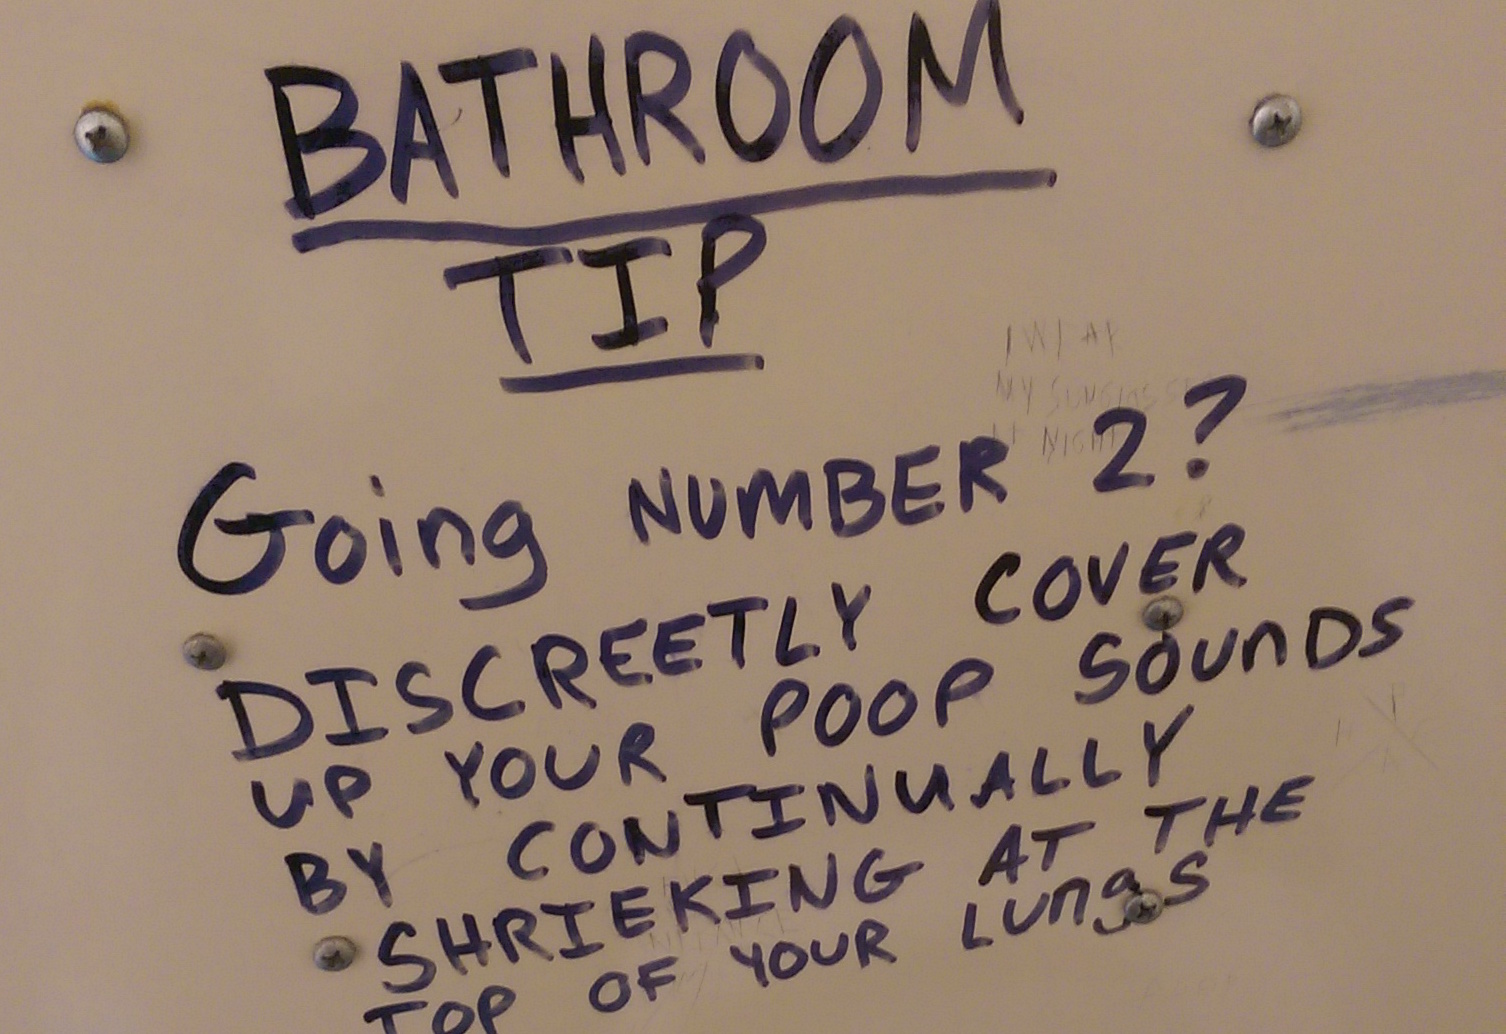 BATHROOM
TIP
Going NUMBER 2?
DISCREETLY COVER
UP YOUR POOP SOUNDS
BY CONTINUALLY
SHRIEKING AT THE
TOP OF YOUR LUngS
MY
NIGHT